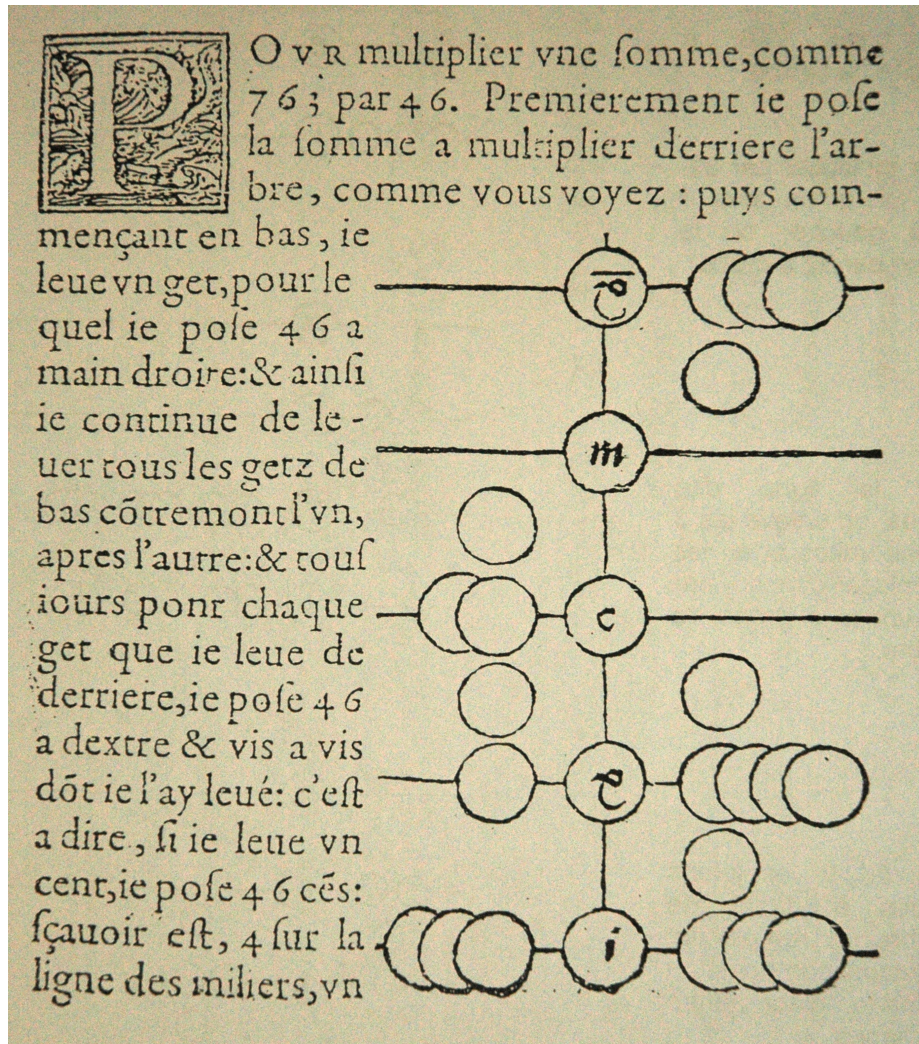 POVR multiplier vne ſomme,comme
763 par 46. Premierement ie poſe
la ſomme a multiplier derriere l'ar-
bre, comme vous voyez : puys com-
mençant en bas, ie
leue vn get,pour le
quel ie poſe 46 a
main droite:& ainſi
ie continue de le-
uer tous les getz de
bas cõtremont l'vn,
apres l'autre:& touſ
iours ponr chaque
get que ie leue de
derriere,ie poſe 46
a dextre & vis a vis
dõt ie l'ay leué: c'eſt
a dire, ſi ie leue vn
cent,ie poſe 46 cẽs:
ſçauoir eſt, 4 ſur la
ligne des miliers,vn
m
c
i